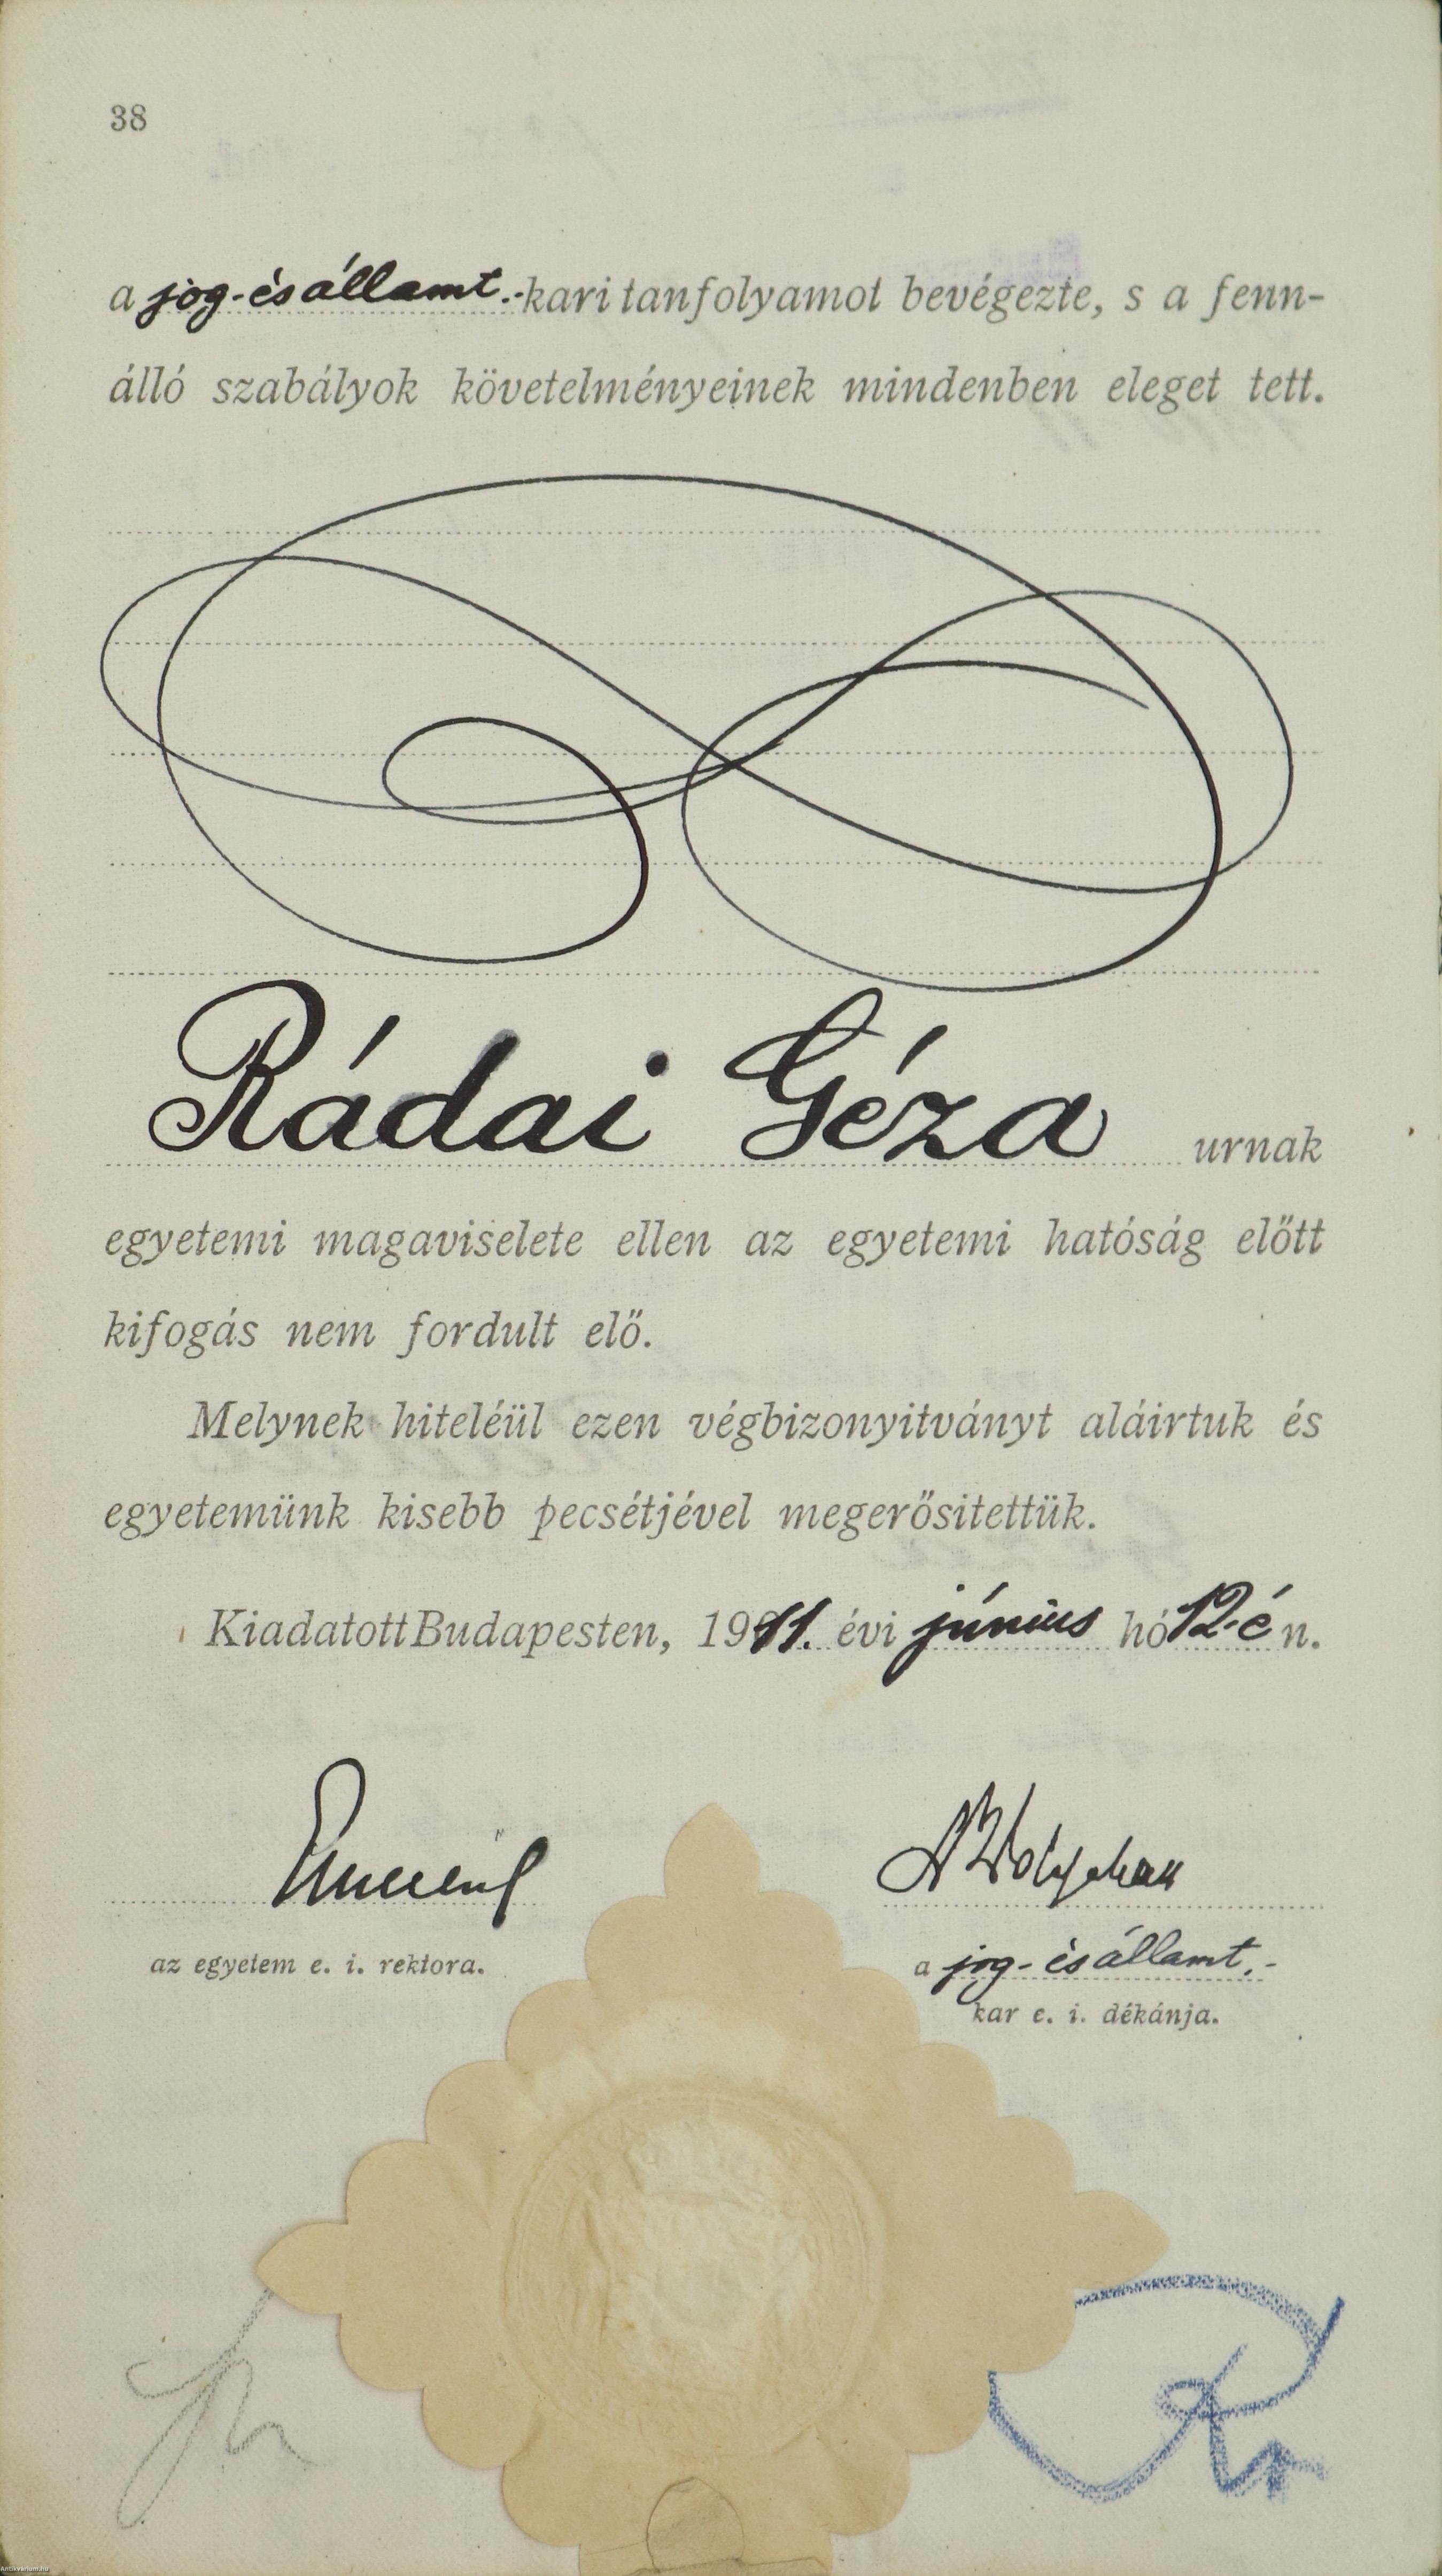 38
a jog-és államt.-kari tanfolyamot bevégezte, s a fenn-
álló szabályok követelményeinek mindenben eleget tett.
Rádai Géza urnak
egyetemi magaviselete ellen az egyetemi hatóság előtt
kifogás nem fordult elő.
Melynek hiteléül ezen végbizonyitványt aláirtuk és
egyetemünk kisebb pecsétjével megerősitettük.
Kiadatott Budapesten, 1911. évi június hó 12-én.
az egyetem e. i. rektora.
a jog-és államt.-
kar e. i. dékánja.
Antikvarium.hu